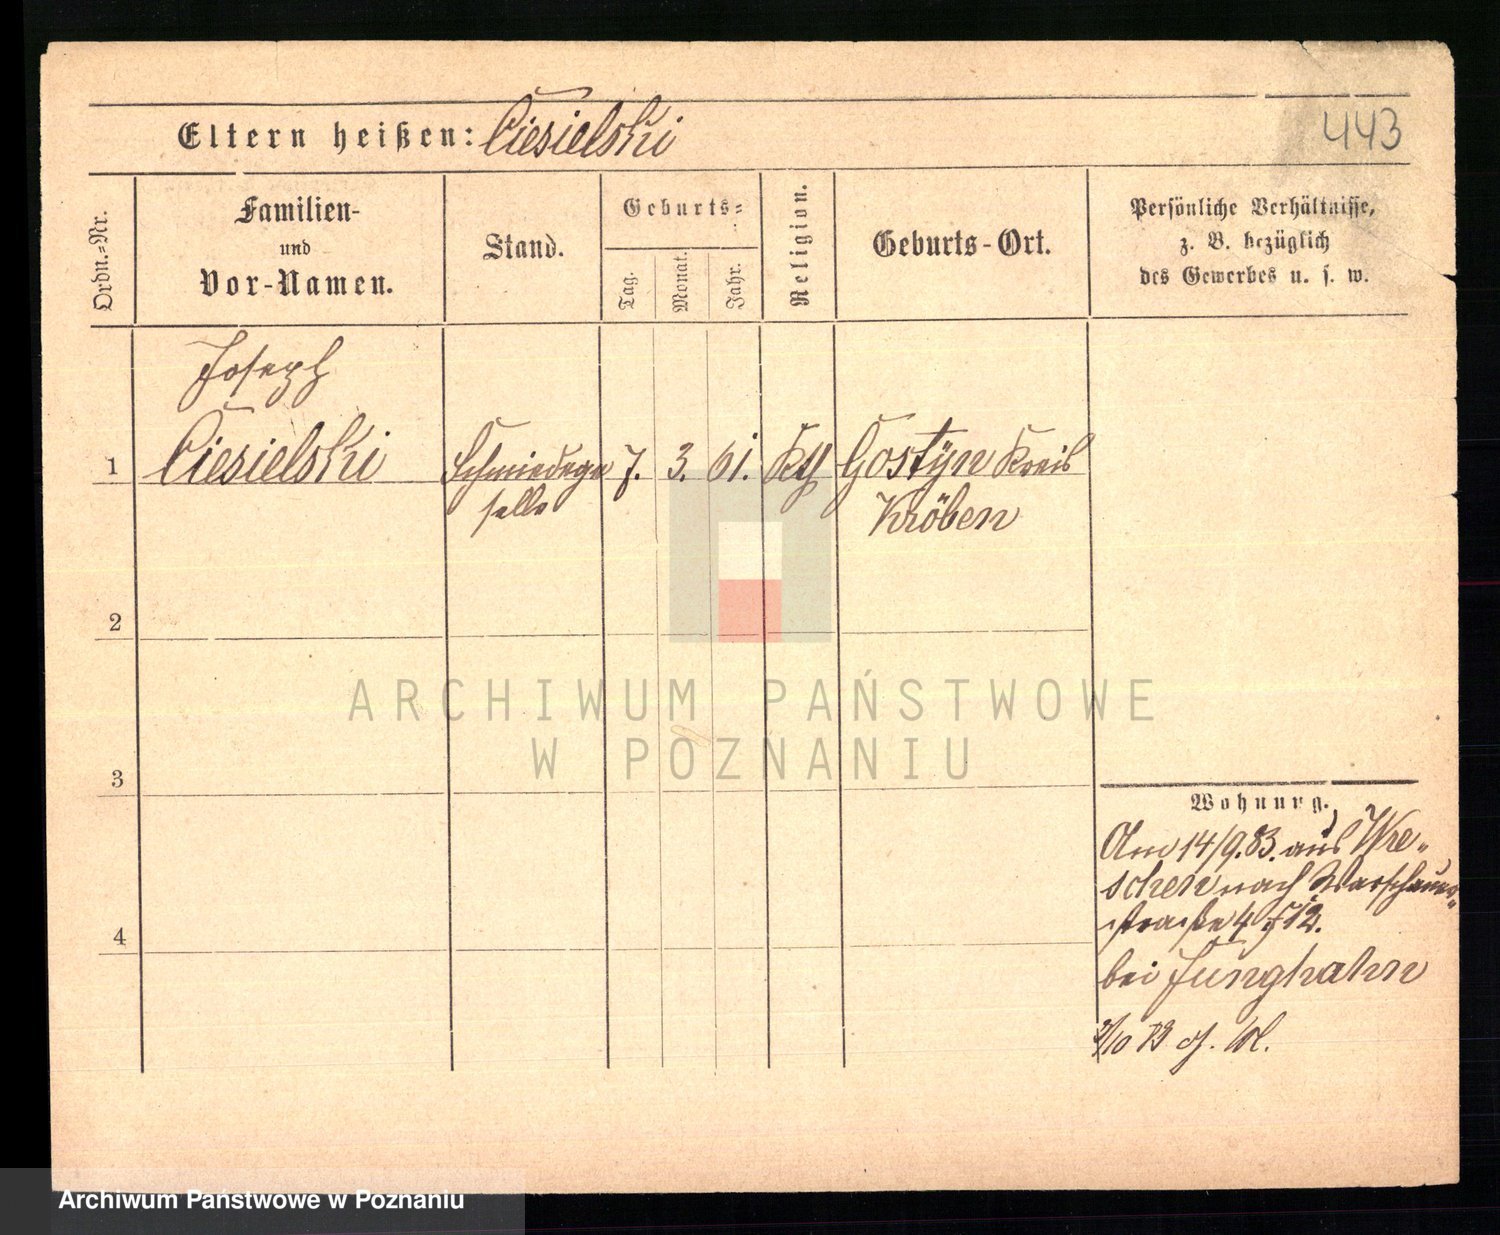 443
Eltern heißen: Ciesielski
Ordn.-Nr.
Familien-
und
Vor-Namen.
Stand.
Geburts-
Tag.
Monat.
Jahr.
Religion.
Geburts-Ort.
Persönliche Verhältnisse,
z. B. bezüglich
des Gewerbes u. s. w.
Joseph
1 Ciesielski Schmiedege 7. 3. 61. Kth Gostÿn Kreis
selle Kröben
2
3
4
Wohnung.
Am 14/9.83. aus Wre-
schen nach Warschauer-
strasse 4
bei Junghahn
2/10
ARCHIWUM PAŃSTWOWE
W POZNANIU
Archiwum Państwowe w Poznaniu